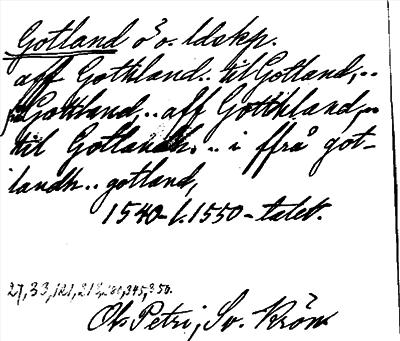 Gotland ö o. ldskp.
aff Gothland.. til Gotland,..
Gottland,.. aff Gotthland,..
til Gotlandh.. i ffrå got-
landh.. gotland,
1540- t. 1550-talet.
27, 33, 121, 213, 345, 350.
Ol. Petri, Sv. Krön.